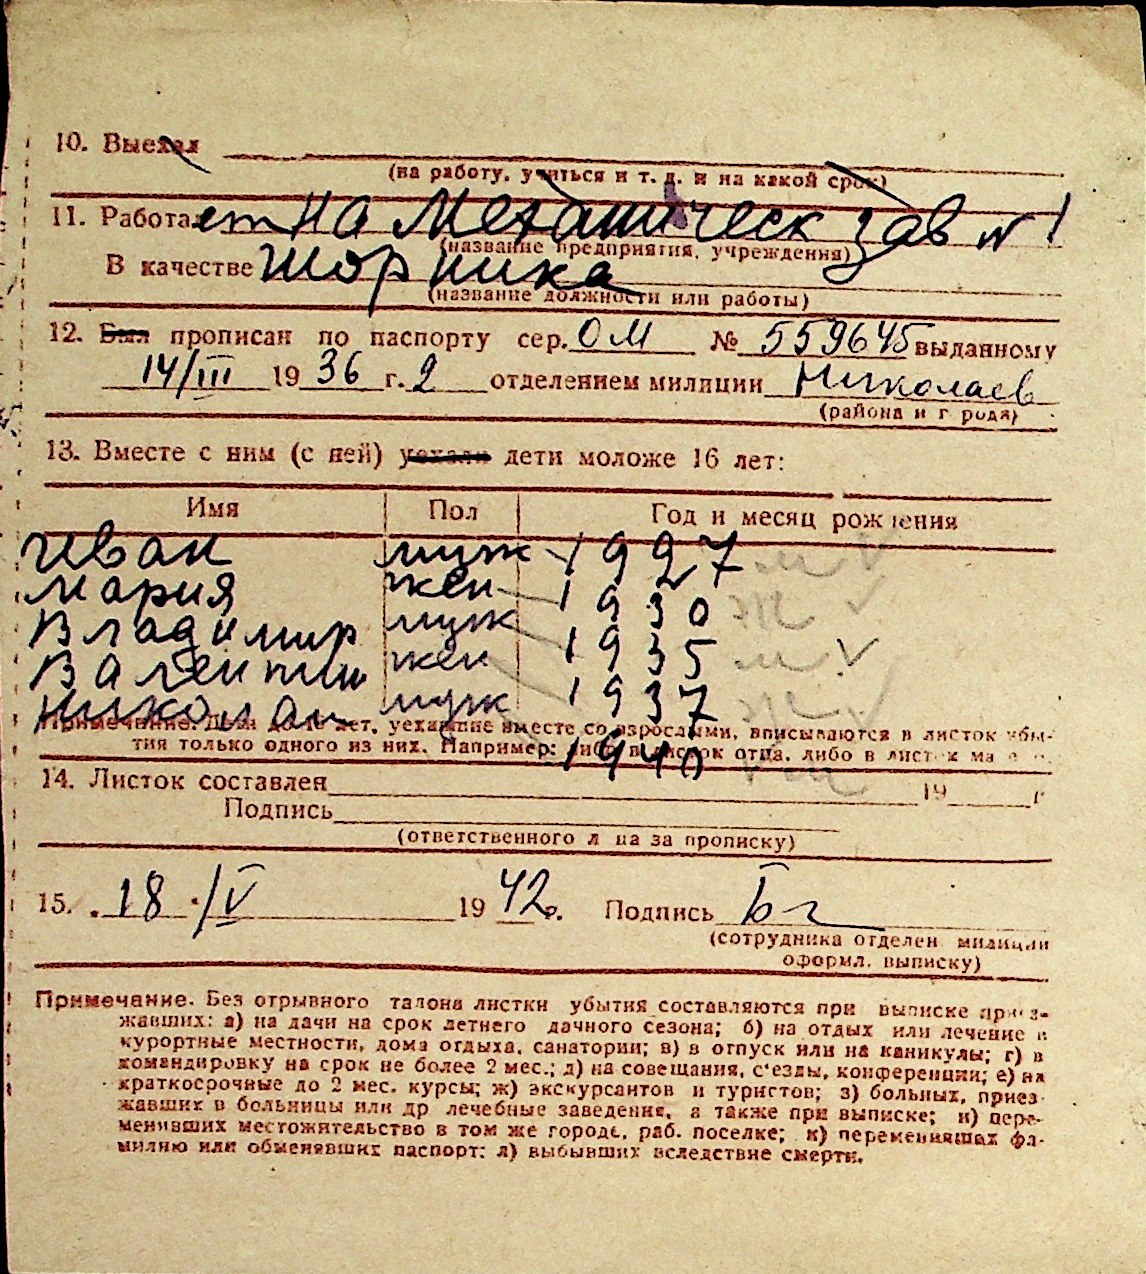 10. Выехал
(на работу, учиться и т. д. и на какой срок)
11. Работает на Механическ зав № 1
(название предприятия, учреждения)
В качестве шорника
(название должности или работы)
12. Был прописан по паспорту сер. ОМ № 559645 выданному
14/III 1936 г. 2 отделением милиции Николаев
(района и г рода)
13. Вместе с ним (с ней) уехали дети моложе 16 лет:
Имя Пол Год и месяц рождения
Иван муж 1927 м
Мария жен 1930 ж
Владимир муж 1935 м
Валентин жен 1937 ж
Николай муж 1940 м
Примечание. Дети до 16 лет, уехавшие вместе со взрослыми, вписываются в листок убы-
тия только одного из них. Например: либо в листок отца, либо в листок ма
14. Листок составлен 19 г
Подпись
(ответственного л ца за прописку)
15. 18 /V 1942 г. Подпись
(сотрудника отделен милиции
оформл. выписку)
Примечание. Без отрывного талона листки убытия составляются при выписке приез-
жавших: а) на дачи на срок летнего дачного сезона; б) на отдых или лечение в
курортные местности, дома отдыха, санатории; в) в отпуск или на каникулы; г) в
командировку на срок не более 2 мес.; д) на совещания, с'езды, конференции; е) на
краткосрочные до 2 мес. курсы; ж) экскурсантов и туристов; з) больных, приез-
жавших в больницы или др лечебные заведение, а также при выписке; и) пере-
менивших местожительство в том же городе, раб. поселке; к) переменивших фа-
милию или обменявших паспорт; л) выбывших вследствие смерти.